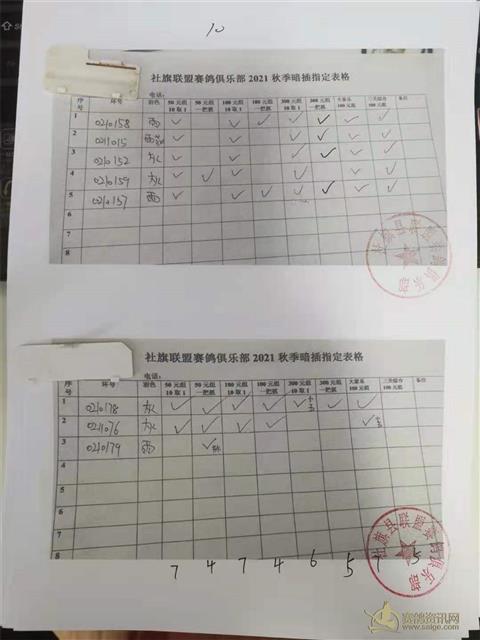 10
社旗联盟赛鸽俱乐部 2021 秋季暗插指定表格
电话:
序号 环号 羽色 50 元组 10 取 1 50 元组 一把抓 100 元组 10 取 1 100 元组 一把抓 300 元组 10 取 1 300 元组 一把抓 大家乐 100 元组 三关综合 100 元组 备注
1 0210158 雨 ✓ ✓ ✓ ✓ ✓ ✓ ✓
2 0211015 ✓ ✓ ✓ ✓ ✓ ✓
3 0210152 灰 ✓ ✓ ✓ ✓ ✓ ✓
4 0210159 灰 ✓ ✓ ✓ ✓ ✓ ✓
5 0210157 雨 ✓ ✓ ✓ ✓ ✓ ✓ ✓
8
社旗县联盟赛鸽俱乐部
社旗联盟赛鸽俱乐部 2021 秋季暗插指定表格
电话:
序号 环号 羽色 50 元组 10 取 1 50 元组 一把抓 100 元组 10 取 1 100 元组 一把抓 300 元组 10 取 1 300 元组 一把抓 大家乐 100 元组 三关综合 100 元组 备注
1 0210178 灰 ✓ ✓ ✓ ✓ ✓ ✓ ✓
2 0211076 灰 ✓ ✓ ✓ ✓ ✓
3 0210179 雨 ✓
4
5
6
7
8
社旗县联盟赛鸽俱乐部
7 4 7 4 6 5 7 5
赛鸽资讯网
www.saige.com